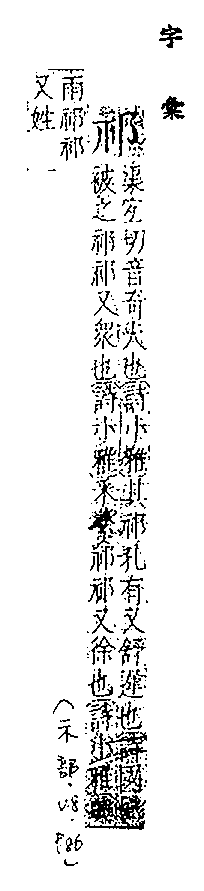 字彙
祁 渠宜切音奇大也詩小雅其祁孔有又舒遲也詩國風
被之祁祁又衆也詩小雅采蘩祁祁又徐也詩小雅興
雨祁祁
又姓
(示部.午8.P.86)